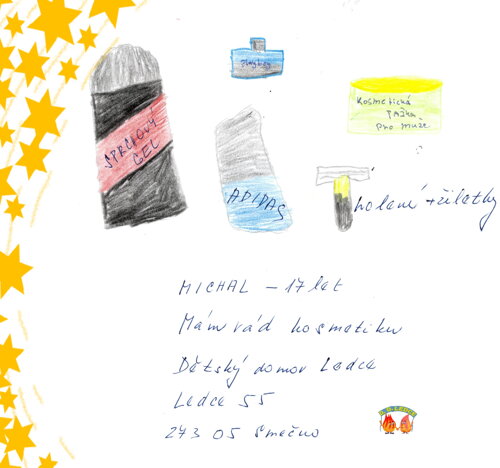 Playboy
SPRCHOVÝ
GEL
Kosmetická
TAŽKA
pro muže
ADIDAS
holení + žiletky
MICHAL – 17 let
Mám rád kosmetiku
Dětský domov Ledce
Ledce 55
273 05 Smečno